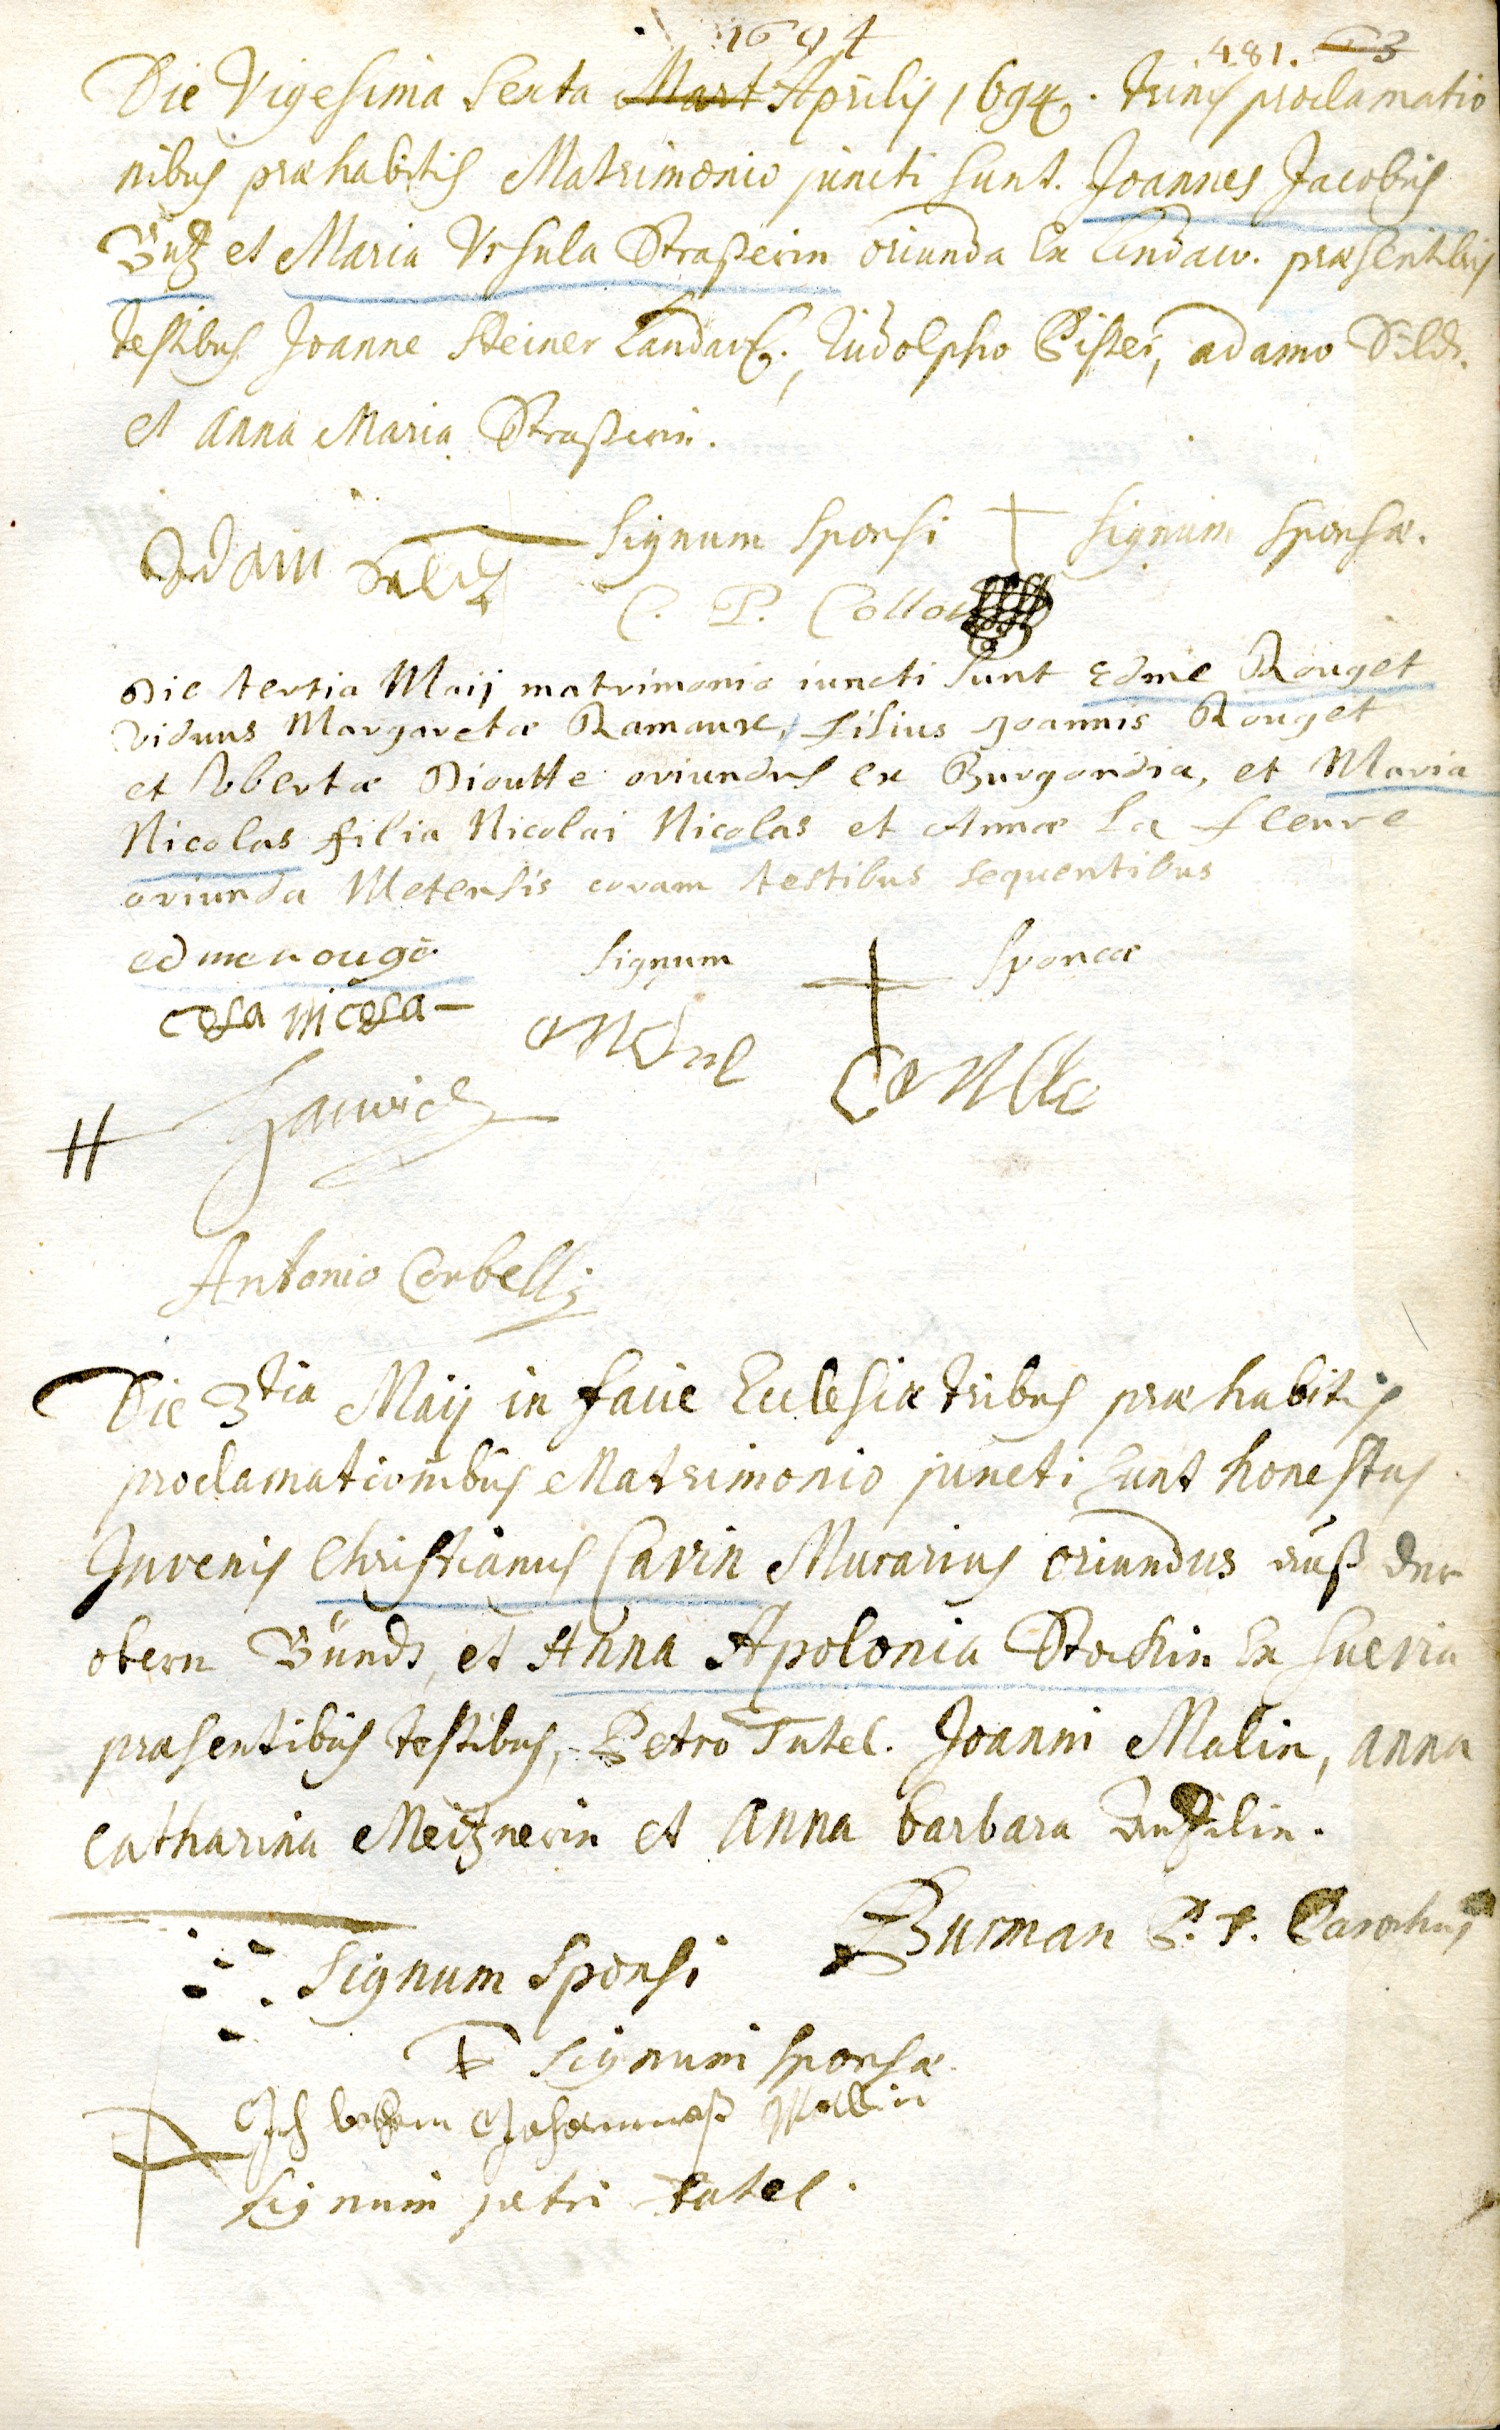 1694
481. 53
Die Vigesima Sexta Mart Aprilis 1694. trinis proclamatio
nibus præhabitis Matrimonio juncti sunt. Joannes Jacobus
Butz et Maria Ursula Straßerin oriunda Ex Lindaw. præsentibus
testibus Joanne Steiner Landav., Rudolpho Pister, adamo
et anna Maria Straßerin.
Adam
Signum Sponsi Signum Sponsæ.
C. P.
Die tertia Maij matrimonio iuncti sunt Edme Rouget
viduus Margaretæ Ramaure, filius Joannis Rouget
et Robertæ Dioutte oriundus ex Burgondia, et Maria
Nicolas filia Nicolai Nicolas et Annæ La fleure
oriunda Metensis coram testibus sequentibus
edme rouge
Signum Sponcæ
cola nicola
andre
Antonio Corbelli
Die 3tia Maij in facie Ecclesiæ tribus præhabitis
proclamationibus Matrimonio juncti sunt honestus
Juvenis Christianus Cavin Murarius oriundus auß der
obern Bündt, et Anna Apolonia Stockin Ex Suevia
præsentibus testibus, Petro Tutel. Joanni Malin, anna
catharina Meitznerin et Anna barbara
Burman P. T. Parochus
Signum Sponsi
Signum sponsæ.
Ich Johanneß Mallin
Signum petri tutel.